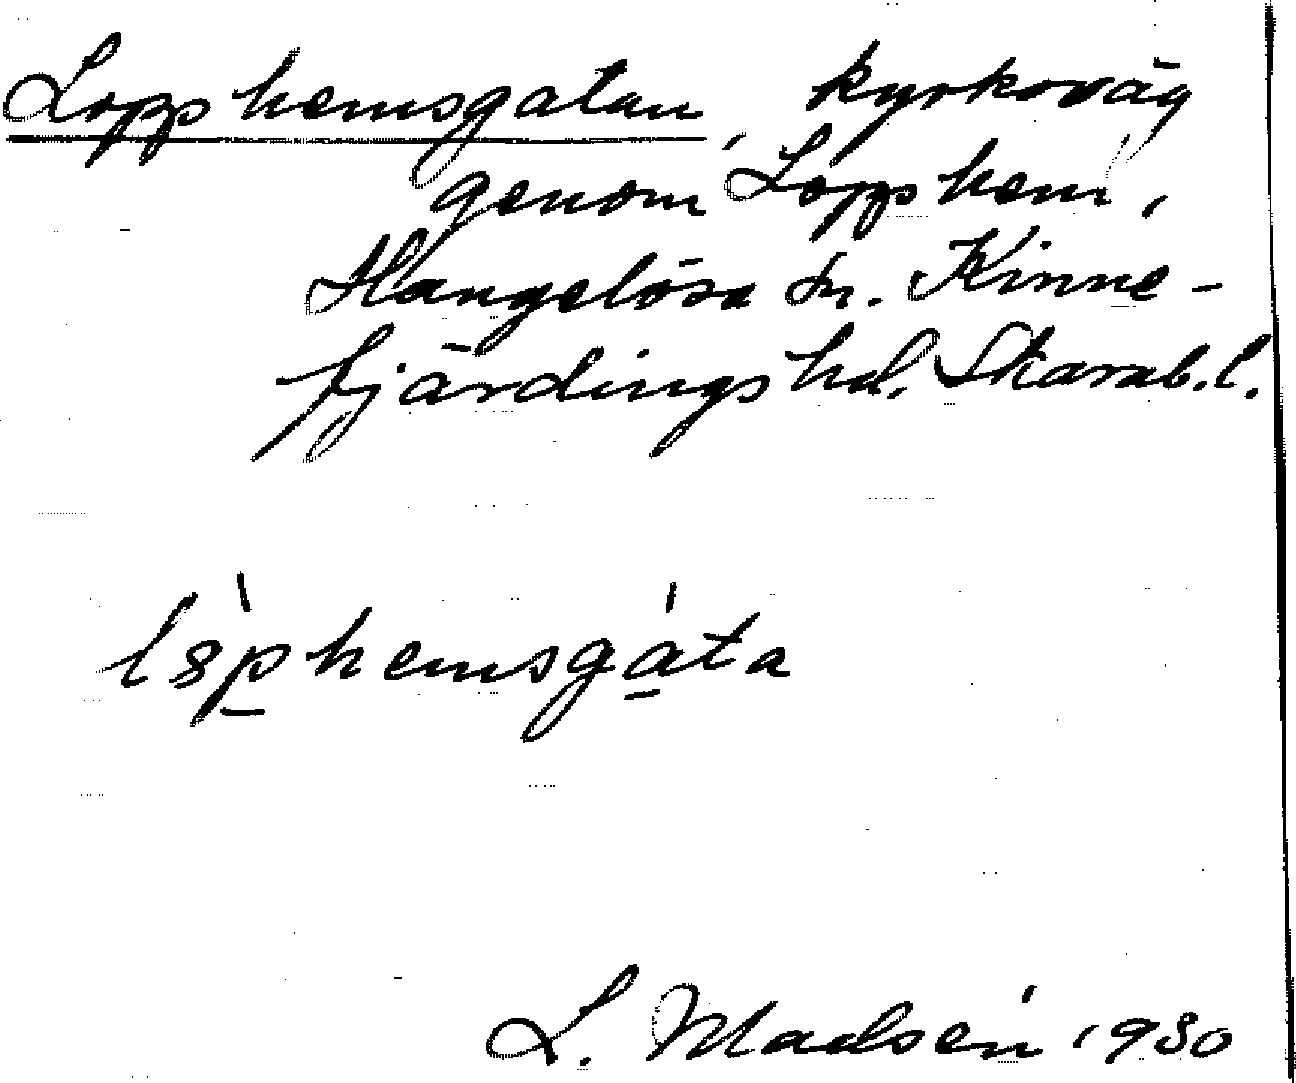 Lopphemsgatan, kyrkoväg
genom Lopphem,
Hangelösa sn. Kinne-
fjärdings hd. Skarab.l.
l8̀p̱hemsgá̱ta
L. Madsén 1930